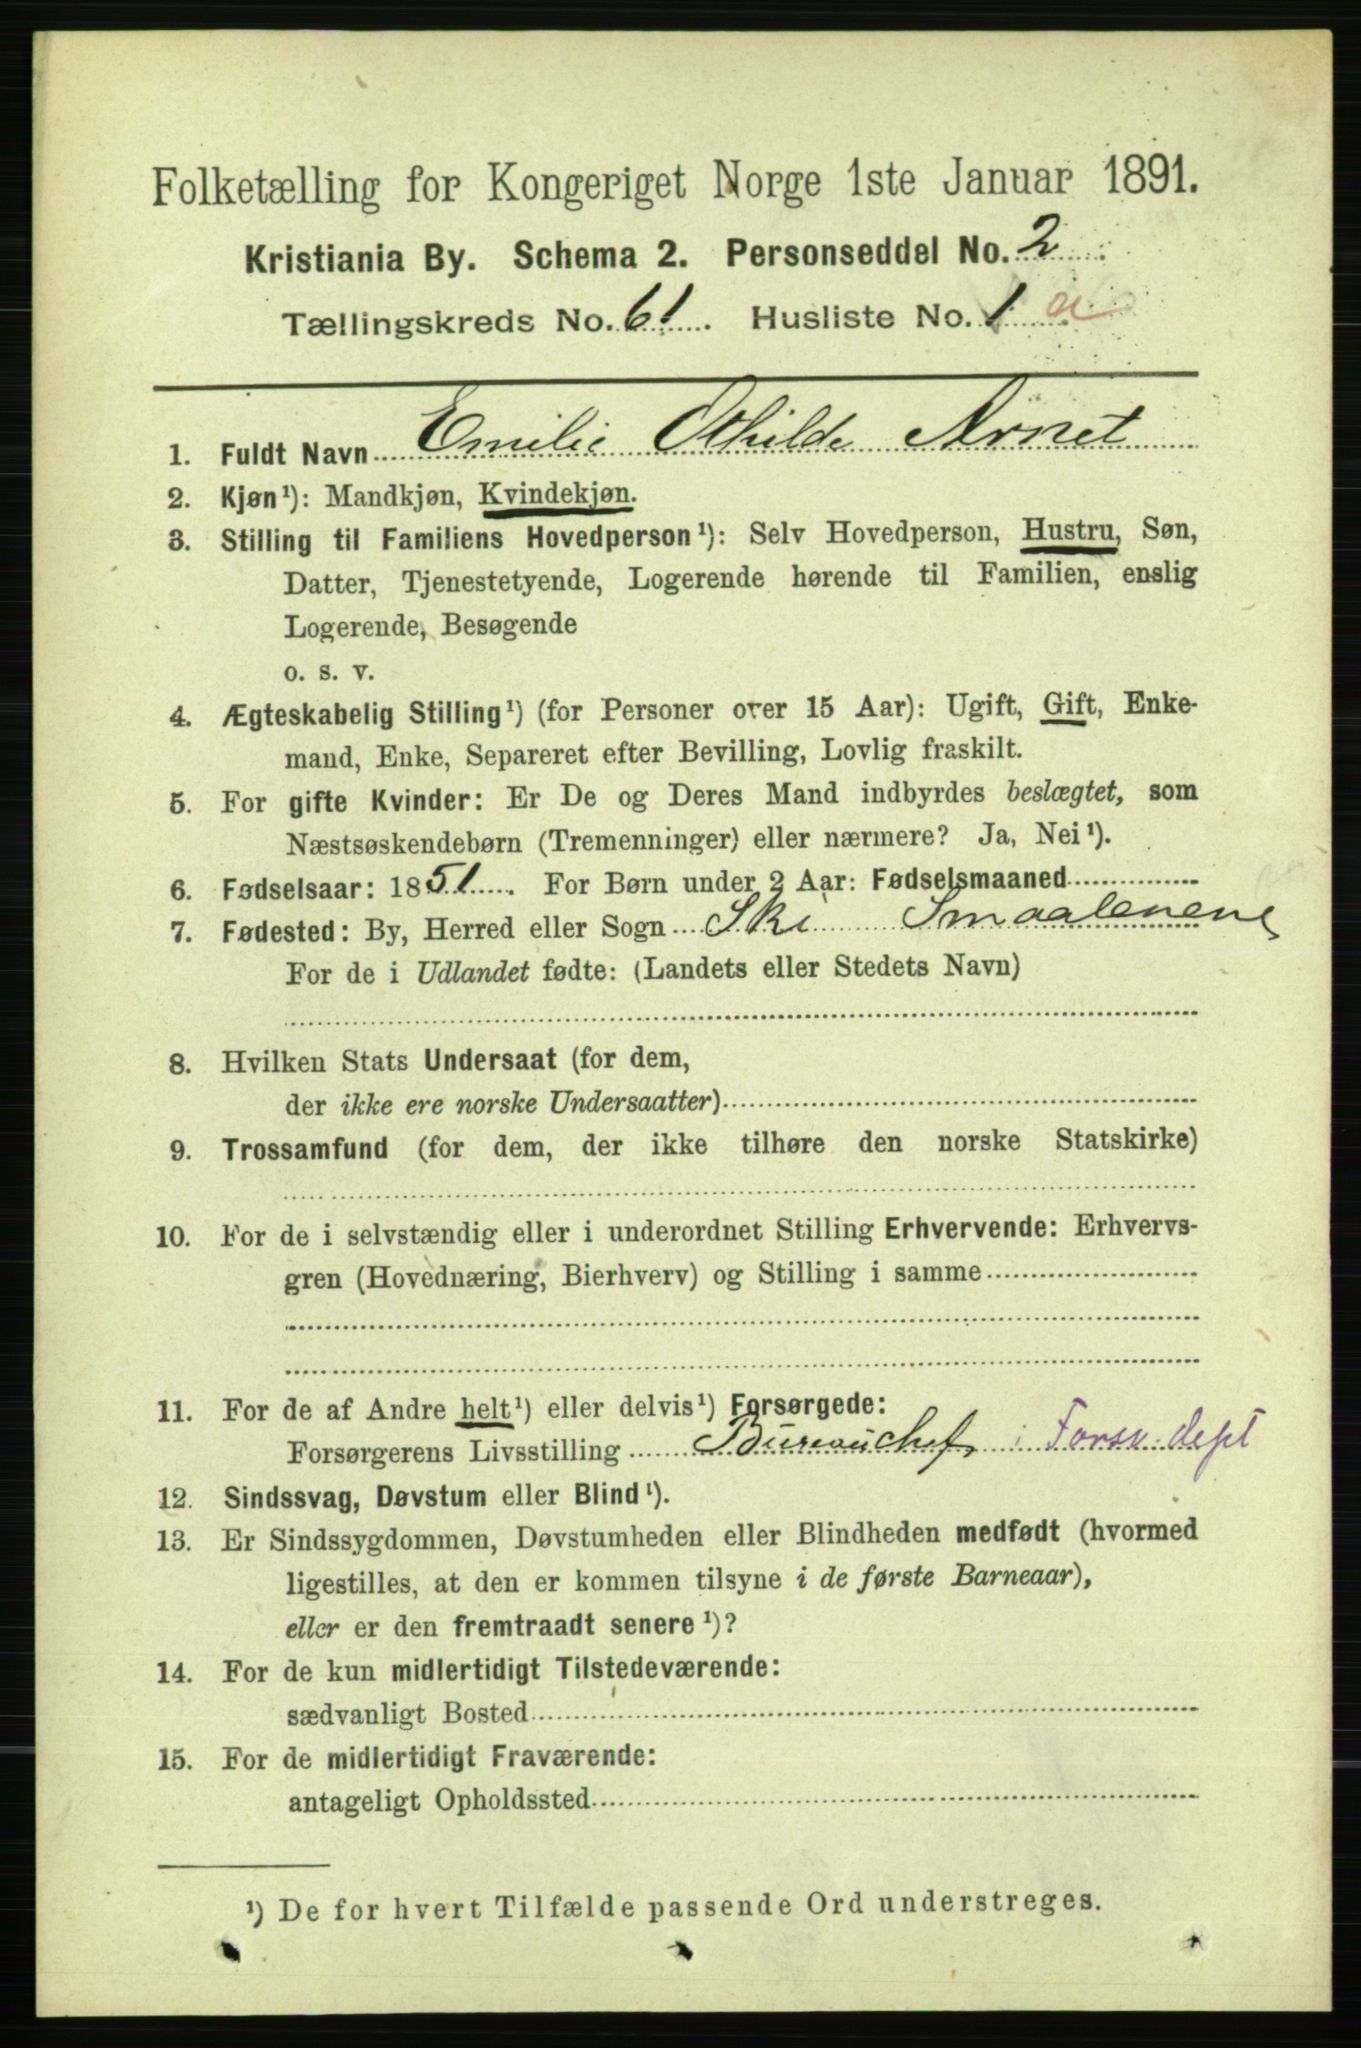 Folketælling for Kongeriget Norge 1ste Januar 1891.
Kristiania By. Schema 2. Personseddel No. 2
Tællingskreds No. 61. Husliste No. 1 a
1. Fuldt Navn Emilie Othilde Arnet
2. Kjøn¹): Mandkjøn, Kvindekjøn.
3. Stilling til Familiens Hovedperson¹): Selv Hovedperson, Hustru, Søn,
Datter, Tjenestetyende, Logerende hørende til Familien, enslig
Logerende, Besøgende
o. s. v.
4. Ægteskabelig Stilling¹) (for Personer over 15 Aar): Ugift, Gift, Enke-
mand, Enke, Separeret efter Bevilling, Lovlig fraskilt.
5. For gifte Kvinder: Er De og Deres Mand indbyrdes beslægtet, som
Næstsøskendebørn (Tremenninger) eller nærmere? Ja, Nei¹).
6. Fødselsaar: 1851. For Børn under 2 Aar: Fødselsmaaned
7. Fødested: By, Herred eller Sogn Ski Smaalenene
For de i Udlandet fødte: (Landets eller Stedets Navn)
8. Hvilken Stats Undersaat (for dem,
der ikke ere norske Undersaatter)
9. Trossamfund (for dem, der ikke tilhøre den norske Statskirke)
10. For de i selvstændig eller i underordnet Stilling Erhvervende: Erhvervs-
gren (Hovednæring, Bierhverv) og Stilling i samme
11. For de af Andre helt¹) eller delvis¹) Forsørgede:
Forsørgerens Livsstilling Bureauchef, i Forsv. dept
12. Sindssvag, Døvstum eller Blind¹).
13. Er Sindssygdommen, Døvstumheden eller Blindheden medfødt (hvormed
ligestilles, at den er kommen tilsyne i de første Barneaar),
eller er den fremtraadt senere¹)?
14. For de kun midlertidigt Tilstedeværende:
sædvanligt Bosted
15. For de midlertidigt Fraværende:
antageligt Opholdssted
¹) De for hvert Tilfælde passende Ord understreges.